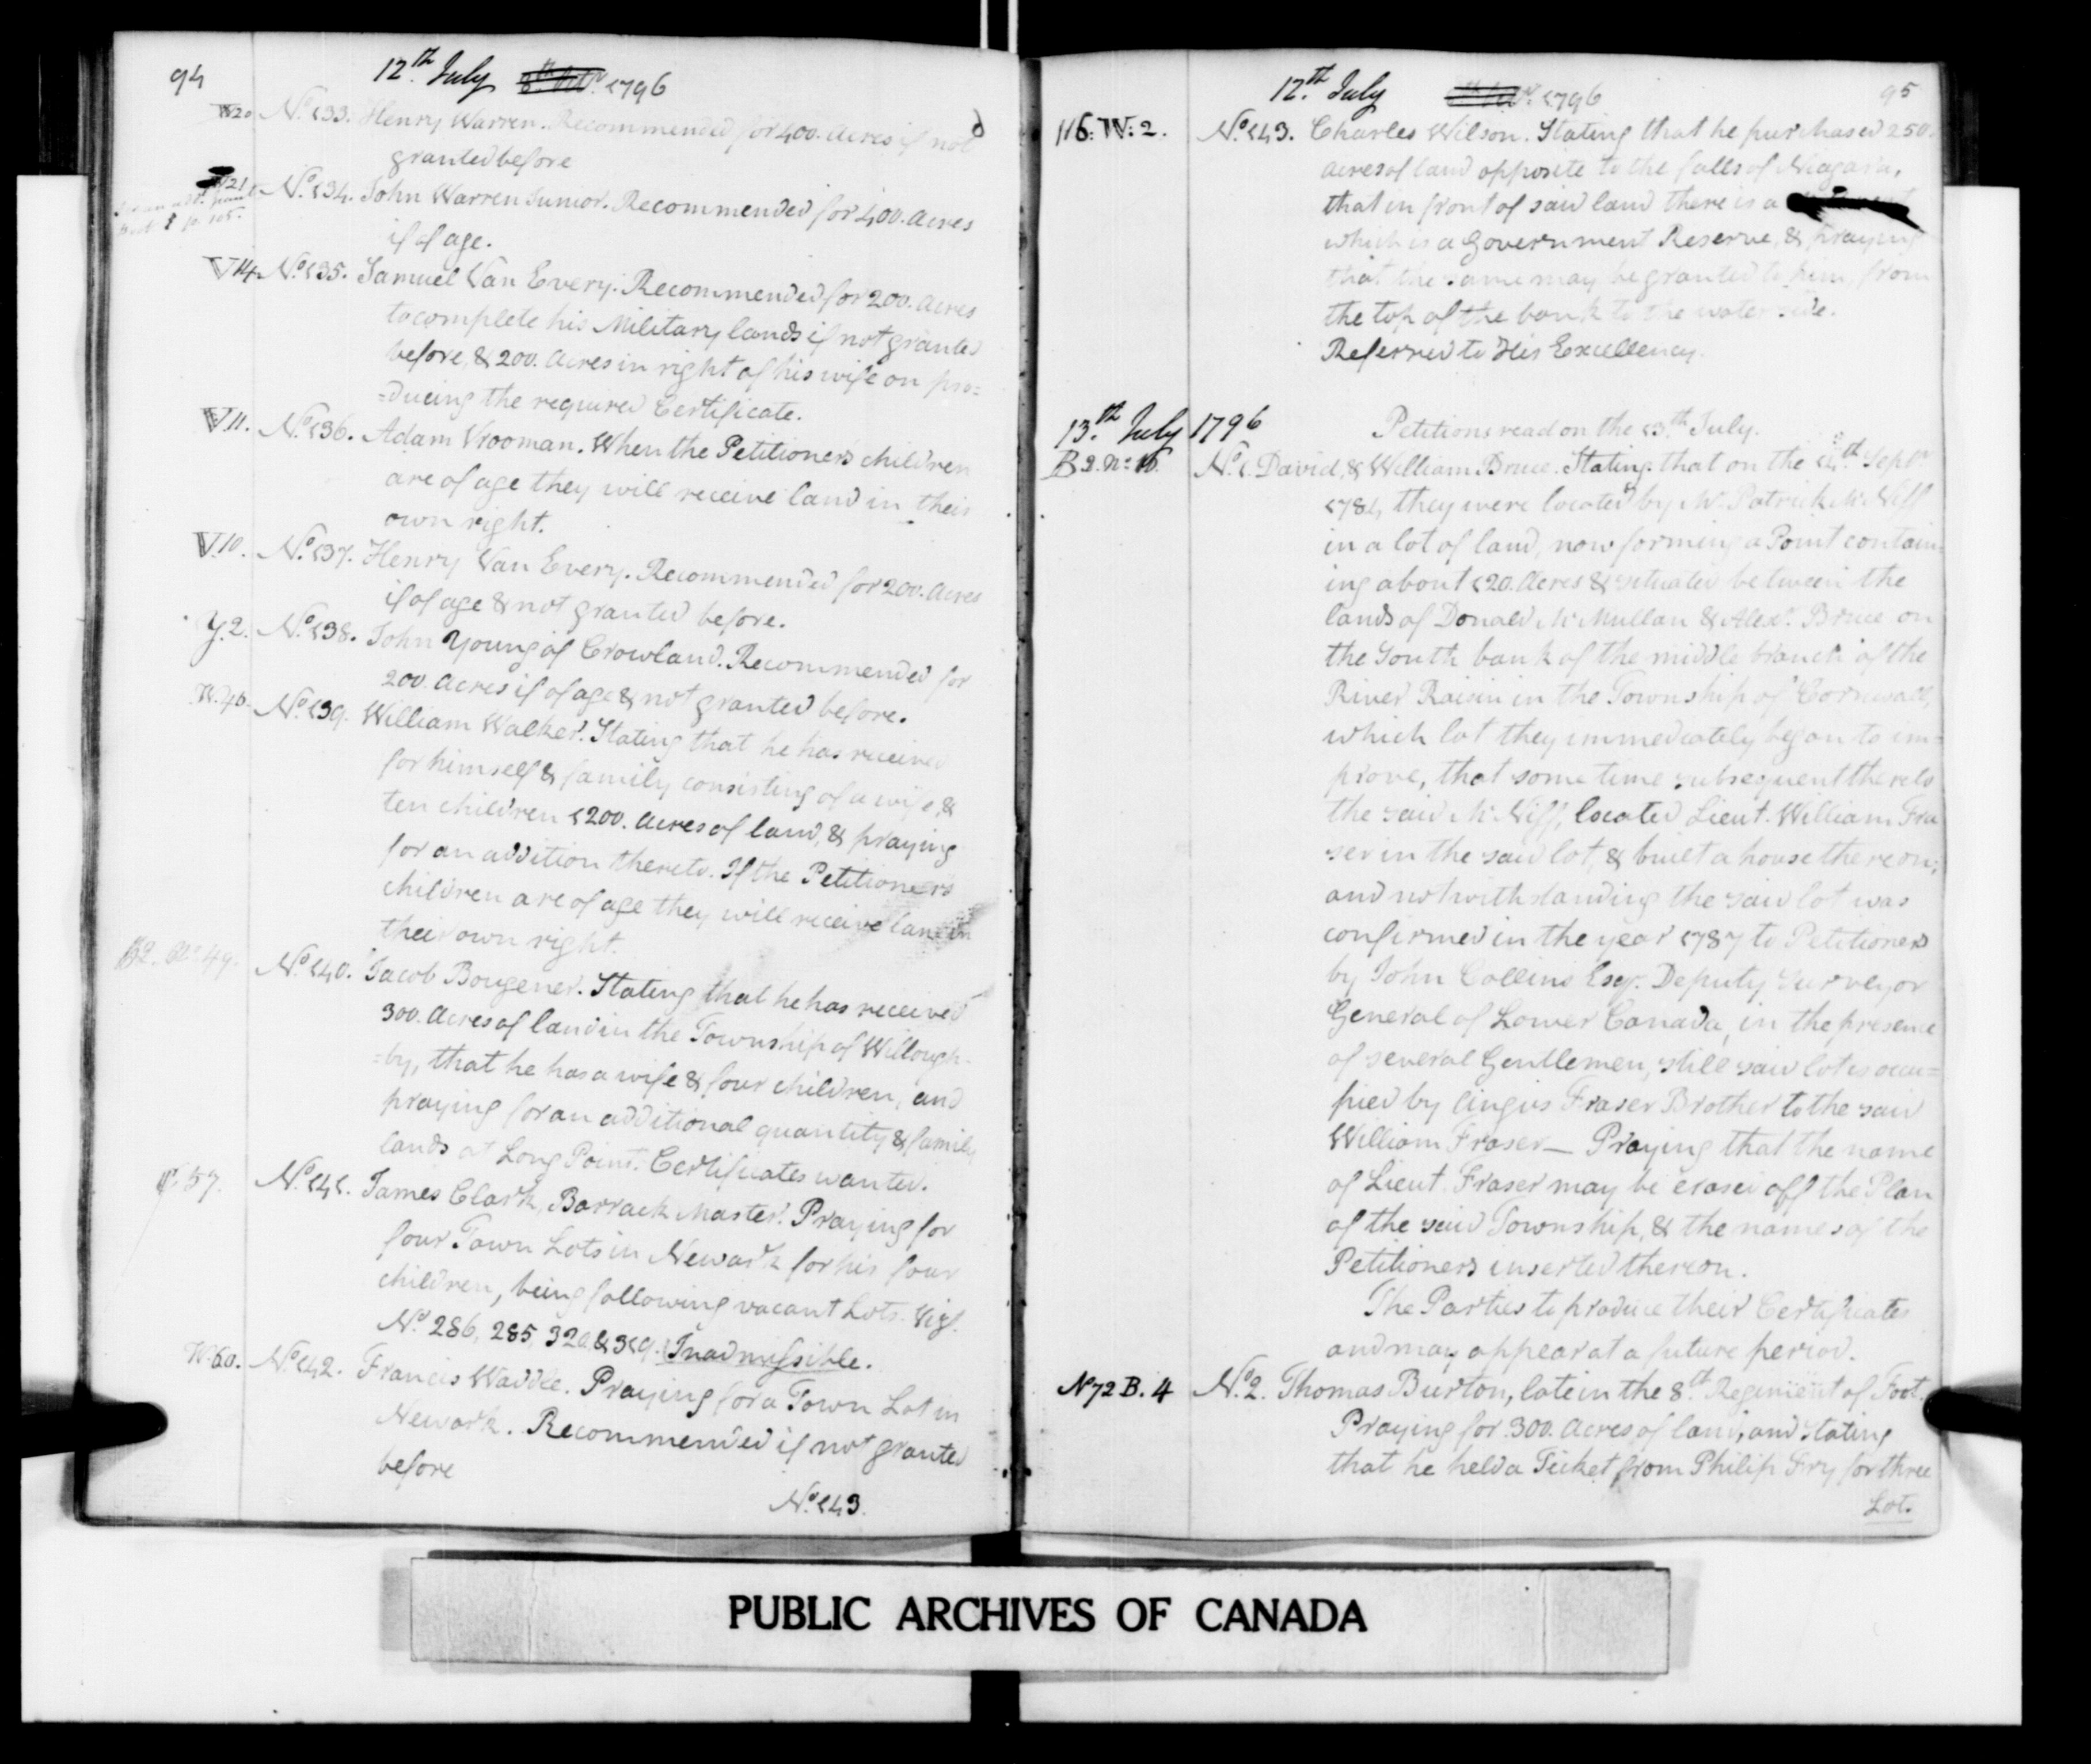 94
12th July 8th Octr. 1796
W20 No. 133. Henry Warren. Recommended for 400. Acres if not
granted before
21 No. 134. John Warren Junior. Recommended for 400. Acres
p. 105.
if of age.
V14. No. 135. Samuel Van Every. Recommended for 200. Acres
to complete his Military lands if not granted
before, & 200. Acres in right of his wife on pro=
=ducing the required Certificate.
V.11. No. 136. Adam Vrooman. When the Petitioner's children
are of age they will receive land in their
own right.
V.10. No. 137. Henry Van Every. Recommended for 200. Acres
if of age & not granted before.
Y.2. No. 138. John Young of Crowland. Recommended for
200. Acres if of age & not granted before.
W.40. No. 139. William Walker. Stating that he has received
for himself & family consisting of a wife, &
ten children 1200. Acres of land, & praying
for an addition thereto. If the Petitioner's
children are of age they will receive land in
their own right.
B2. No. 49. No. 140. Jacob Bougener. Stating that he has received
300. Acres of land in the Township of Willough-
=by, that he has a wife & four children, and
praying for an additional quantity & family
lands at Long Point. Certificates wanted.
C 57. No. 141. James Clark, Barrack Master. Praying for
four Town Lots in Newark for his four
children, being following vacant Lots. Vizt.
No. 286, 285, 320. & 319. Inadmissible.
W.60. No. 142. Francis Waddle. Praying for a Town Lot in
Newark. Recommended if not granted
before
No. 143.
12th July 1796
95
116: W: 2. No. 143. Charles Wilson. Stating that he purchased 250.
acres of land opposite to the falls of Niagara,
that in front of said land there is a
which is a Government Reserve, & praying
that the same may be granted to him, from
the top of the bank to the water side.
Referred to His Excellency.
13th July 1796
Petitions read on the 13th July.
B 2. No. 16. No. 1. David, & William Bruce. Stating that on the 14th Septr.
1784, they were located by Mr. Patrick Mc. Niff
in a lot of land, now forming a Point contain=
ing about 120. Acres & situated between the
lands of Donald Mc. Mullan & Alexr. Bruce on
the South bank of the middle branch of the
River Raisin in the Township of Cornwall,
which lot they immediately began to im=
prove, that some time subsequent thereto
the said Mc. Niff, located Lieut. William Fra
ser in the said lot, & built a house thereon;
and notwithstanding the said lot was
confirmed in the year 1787 to Petitioners
by John Collins Esqr. Deputy Surveyor
General of Lower Canada, in the presence
of several Gentlemen, still said lot is occu=
pied by Angus Fraser Brother to the said
William Fraser— Praying that the name
of Lieut. Fraser may be erased off the Plan
of the said Township, & the names of the
Petitioners inserted thereon.
The Parties to produce their Certificates
and may appear at a future period.
N 72 B. 4 No. 2. Thomas Burton, late in the 8th Regiment of Foot.
Praying for 300. Acres of land, and Stating
that he held a Ticket from Philip Fry for three
Lot.
PUBLIC ARCHIVES OF CANADA